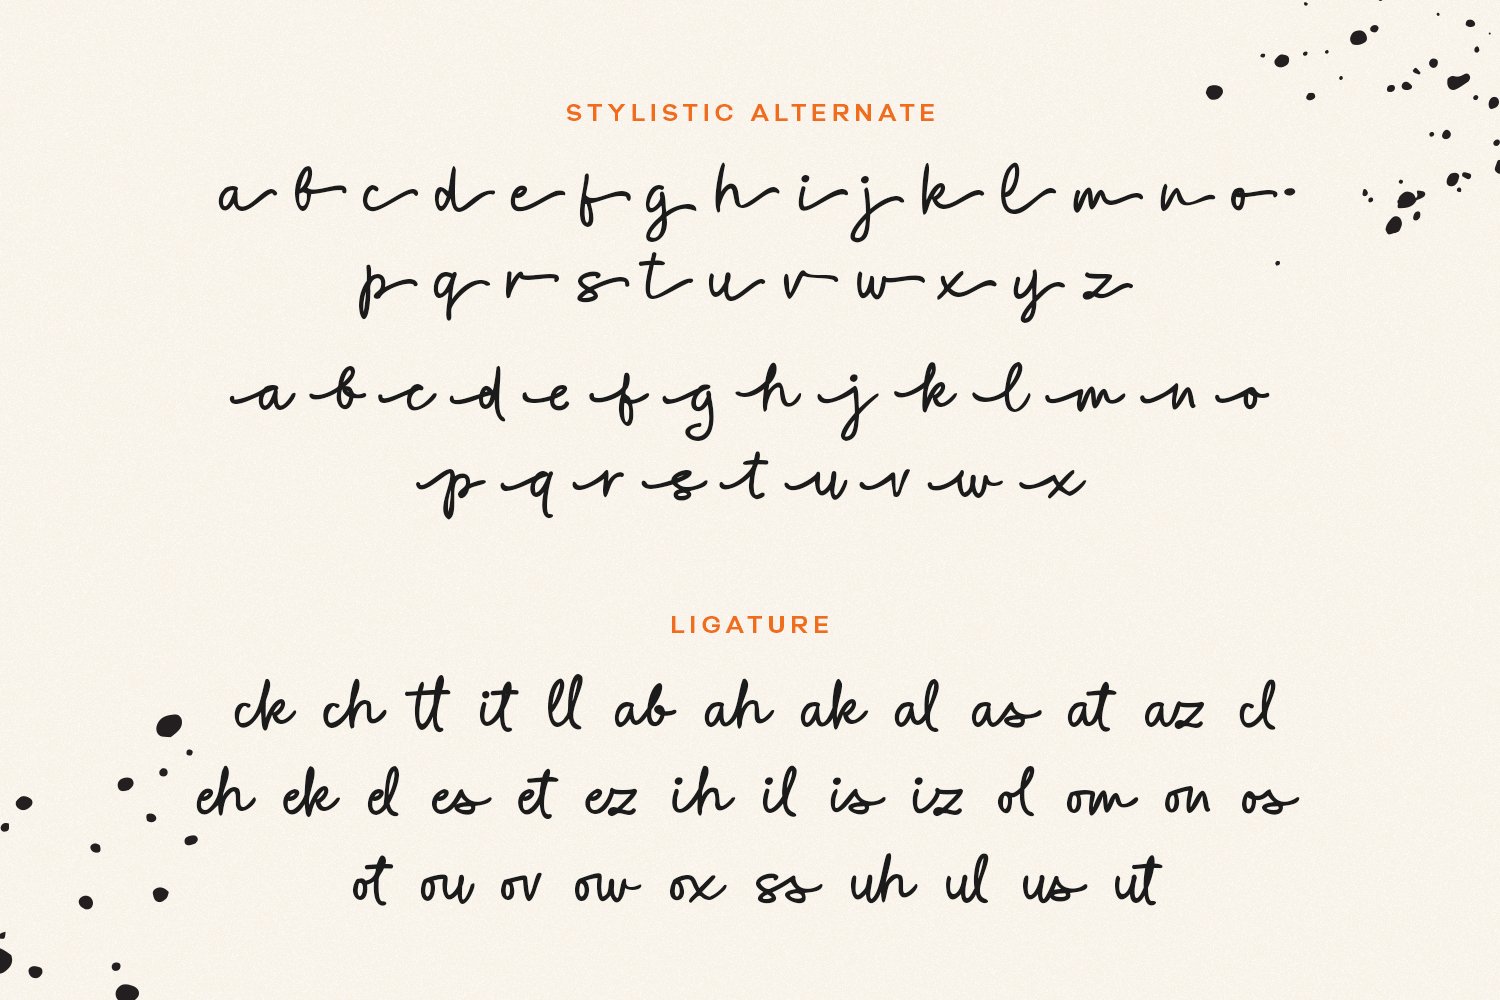 STYLISTIC ALTERNATE
a b c d e f g h i j k l m n o
p q r s t u v w x y z
a b c d e f g h j k l m n o
p q r s t u v w x
LIGATURE
ck ch tt it ll ab ah ak al as at az cl
eh ek el es et ez ih il is iz ol om on os
ot ou ov ow ox ss uh ul us ut